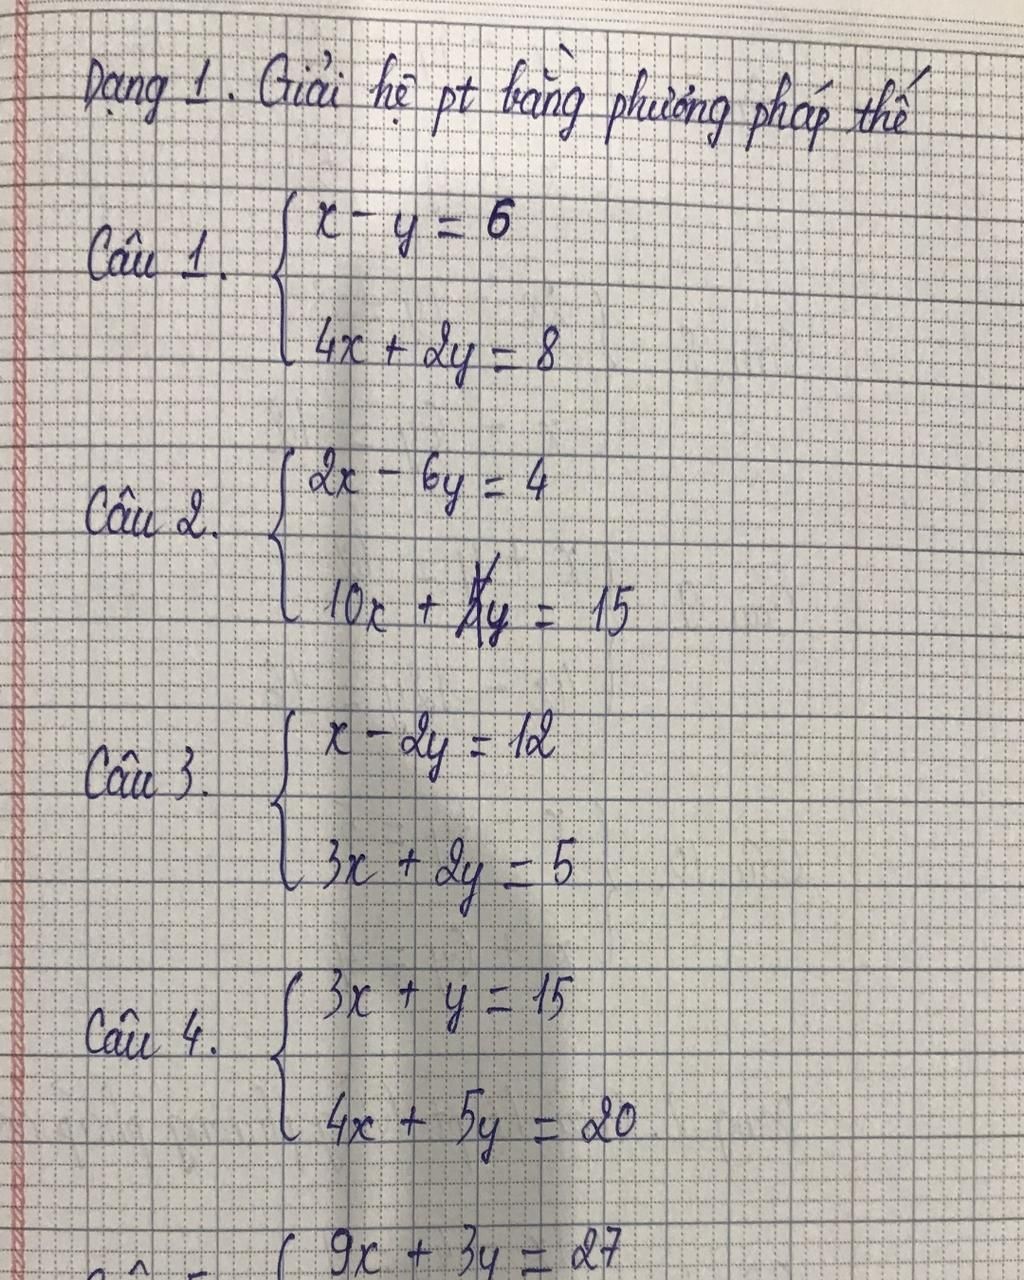 Dạng 1. Giải hệ pt bằng phương pháp thế
Câu 1. { x - y = 6
4x + 2y = 8
Câu 2. { 2x - 6y = 4
10x + y = 15
Câu 3. { x - 2y = 12
3x + 2y = 5
Câu 4. { 3x + y = 15
4x + 5y = 20
{ 9x + 3y = 27